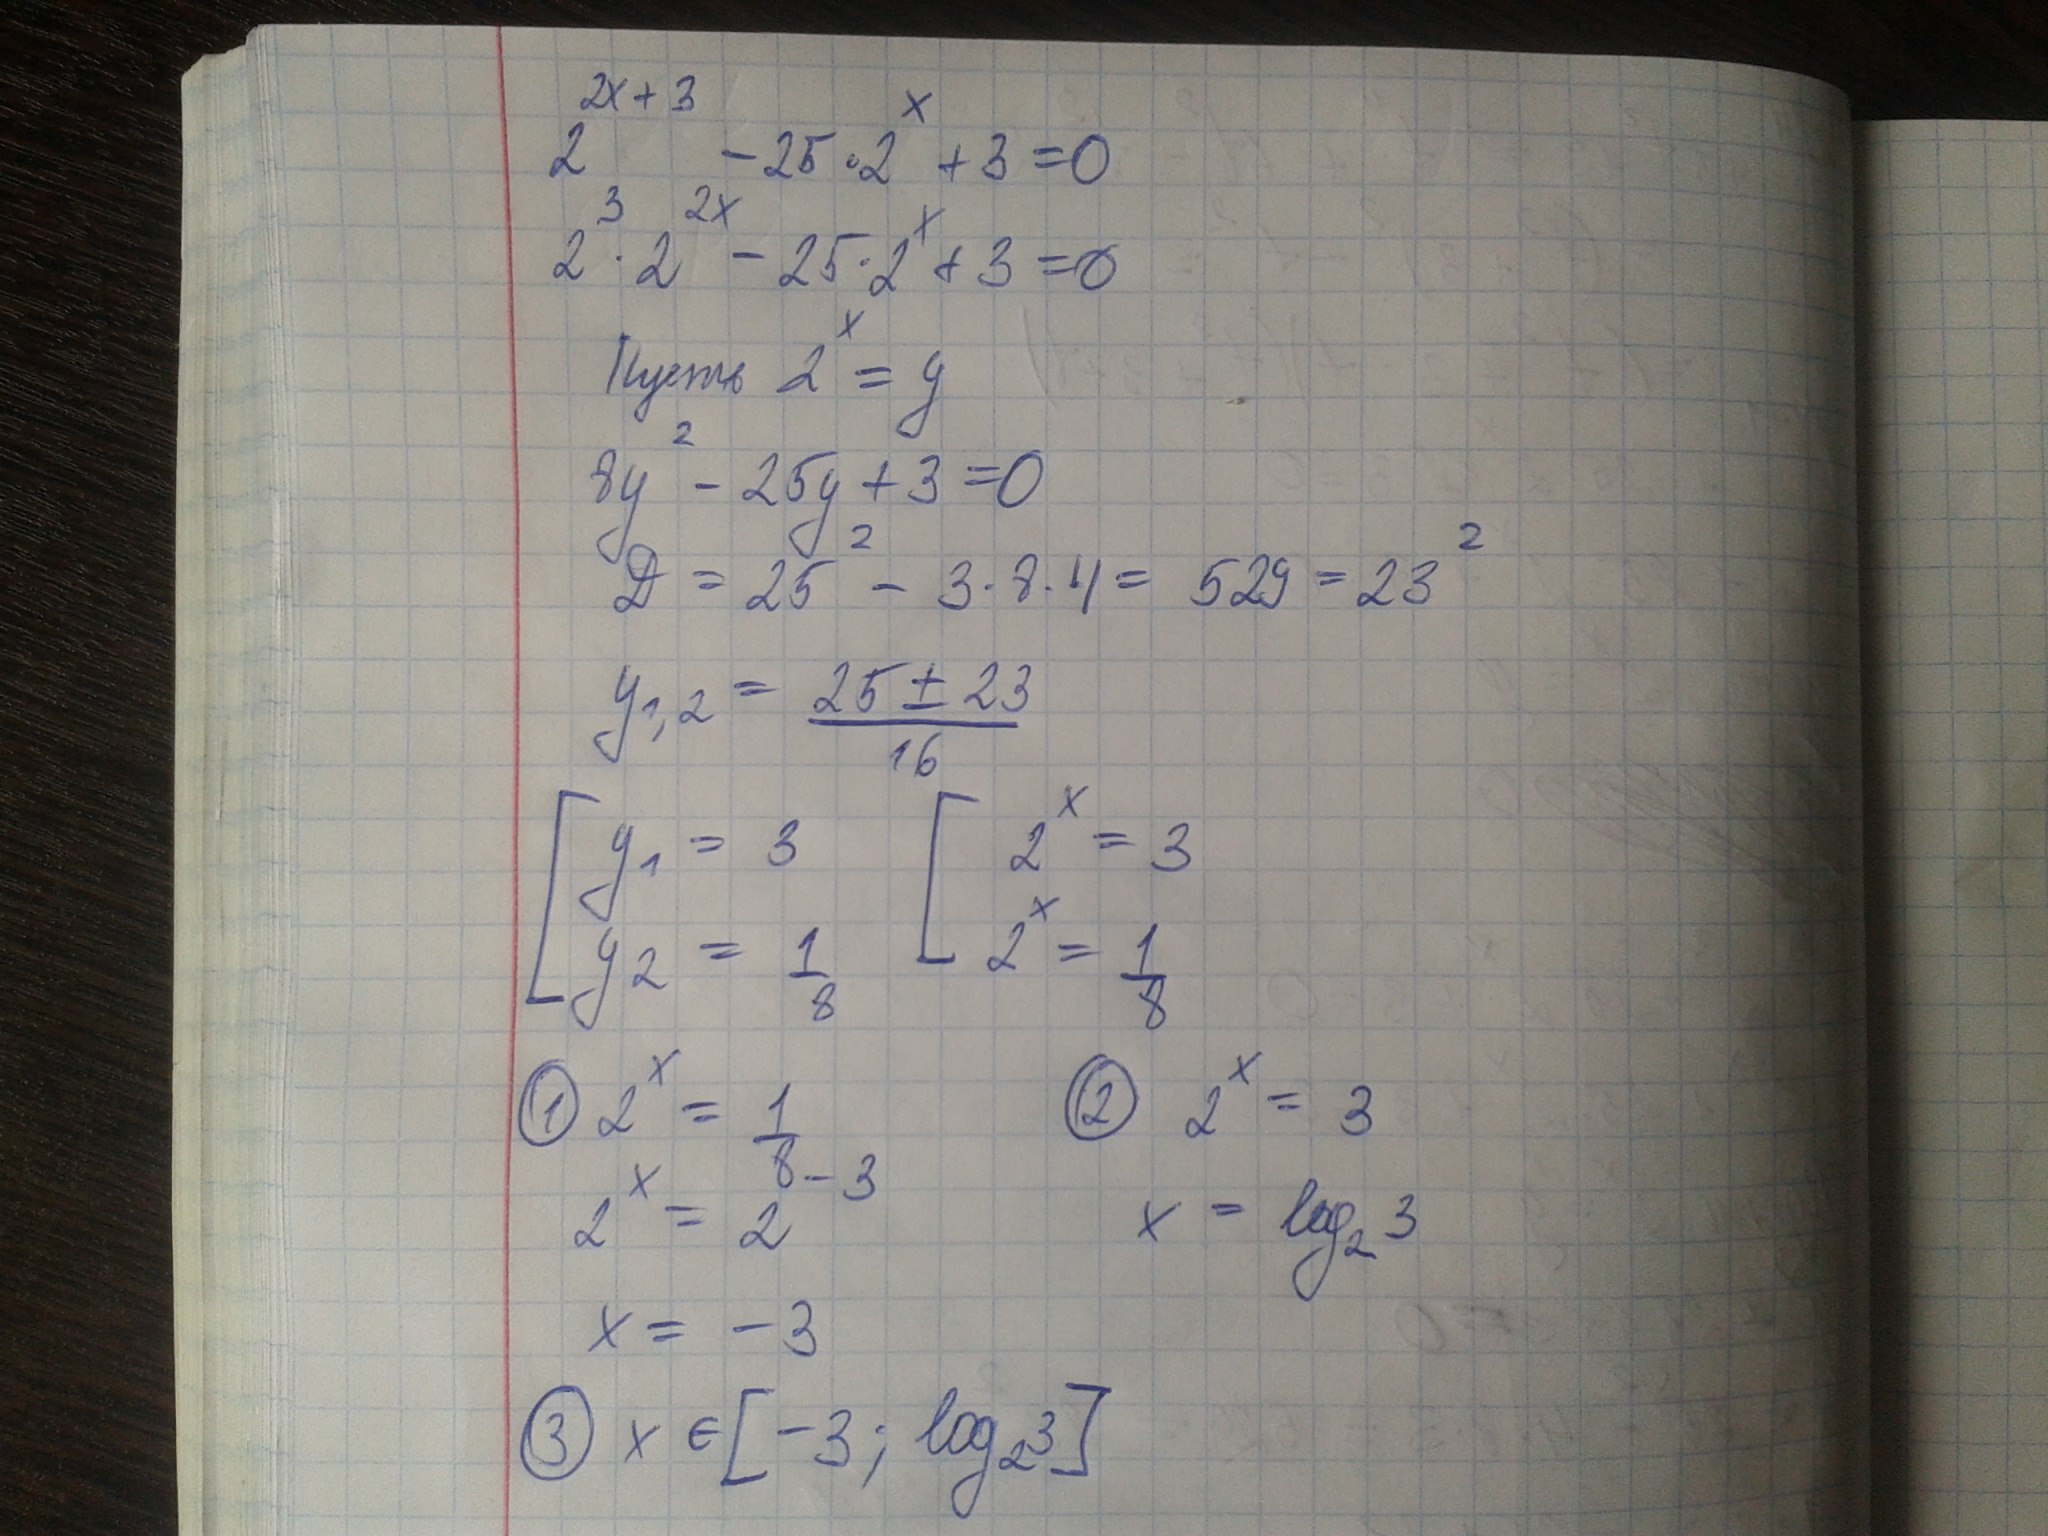 2^{2x+3} - 25·2^x + 3 = 0
2^3 · 2^{2x} - 25·2^x + 3 = 0
Пусть 2^x = y
8y^2 - 25y + 3 = 0
D = 25^2 - 3·8·4 = 529 = 23^2
y_{1,2} = \frac{25 ± 23}{16}
[ y_1 = 3 [ 2^x = 3
y_2 = \frac{1}{8} 2^x = \frac{1}{8}
① 2^x = \frac{1}{8} ② 2^x = 3
2^x = 2^{-3} x = log_2 3
x = -3
③ x ∈ [-3; log_2 3]